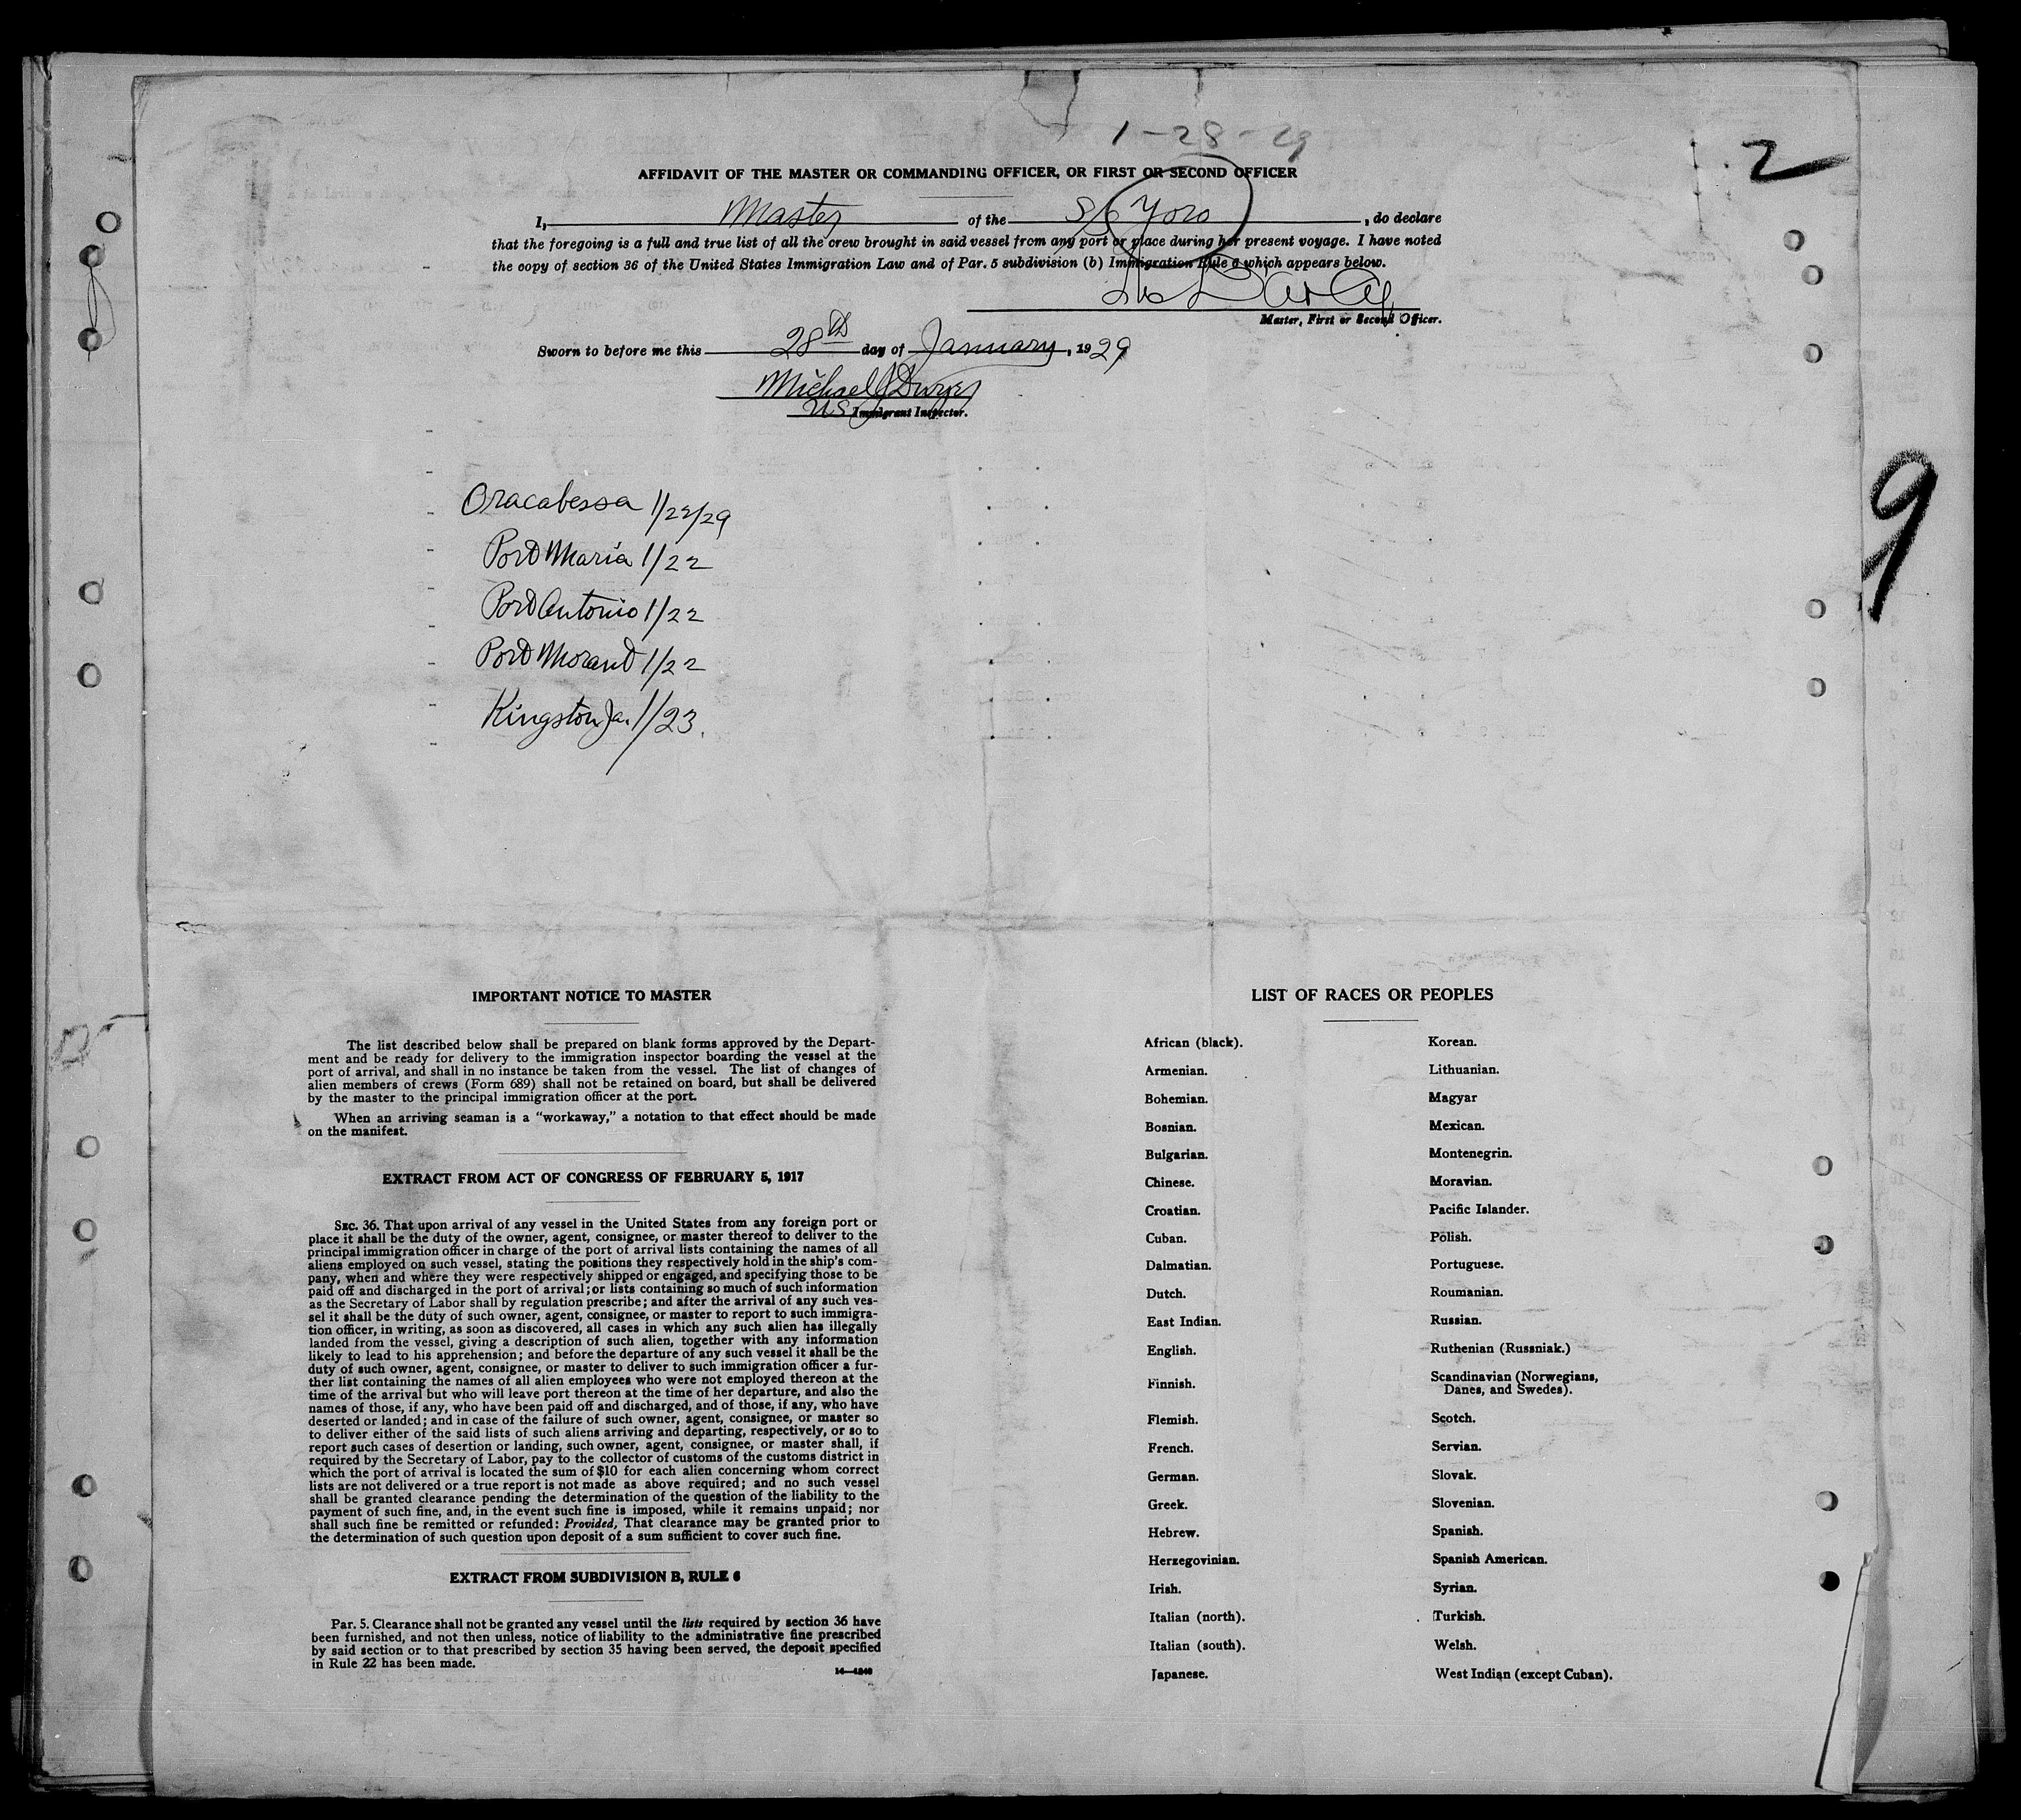 1-28-29
2
AFFIDAVIT OF THE MASTER OR COMMANDING OFFICER, OR FIRST OR SECOND OFFICER
I, Master of the S/S Yoro, do declare
that the foregoing is a full and true list of all the crew brought in said vessel from any port or place during her present voyage. I have noted
the copy of section 36 of the United States Immigration Law and of Par. 5 subdivision (b) Immigration Rule 6 which appears below.
Master, First or Second Officer.
Sworn to before me this 28th day of January, 1929
Michael J Dwyer
US Immigrant Inspector.
9
Oracabessa 1/22/29
Port Maria 1/22
Port Antonio 1/22
Port Morant 1/22
Kingston Ja. 1/23.
IMPORTANT NOTICE TO MASTER
The list described below shall be prepared on blank forms approved by the Depart-
ment and be ready for delivery to the immigration inspector boarding the vessel at the
port of arrival, and shall in no instance be taken from the vessel. The list of changes of
alien members of crews (Form 689) shall not be retained on board, but shall be delivered
by the master to the principal immigration officer at the port.
When an arriving seaman is a "workaway," a notation to that effect should be made
on the manifest.
EXTRACT FROM ACT OF CONGRESS OF FEBRUARY 5, 1917
SEC. 36. That upon arrival of any vessel in the United States from any foreign port or
place it shall be the duty of the owner, agent, consignee, or master thereof to deliver to the
principal immigration officer in charge of the port of arrival lists containing the names of all
aliens employed on such vessel, stating the positions they respectively hold in the ship's com-
pany, when and where they were respectively shipped or engaged, and specifying those to be
paid off and discharged in the port of arrival; or lists containing so much of such information
as the Secretary of Labor shall by regulation prescribe; and after the arrival of any such ves-
sel it shall be the duty of such owner, agent, consignee, or master to report to such immigra-
tion officer, in writing, as soon as discovered, all cases in which any such alien has illegally
landed from the vessel, giving a description of such alien, together with any information
likely to lead to his apprehension; and before the departure of any such vessel it shall be the
duty of such owner, agent, consignee, or master to deliver to such immigration officer a fur-
ther list containing the names of all alien employees who were not employed thereon at the
time of the arrival but who will leave port thereon at the time of her departure, and also the
names of those, if any, who have been paid off and discharged, and of those, if any, who have
deserted or landed; and in case of the failure of such owner, agent, consignee, or master so
to deliver either of the said lists of such aliens arriving and departing, respectively, or so to
report such cases of desertion or landing, such owner, agent, consignee, or master shall, if
required by the Secretary of Labor, pay to the collector of customs of the customs district in
which the port of arrival is located the sum of $10 for each alien concerning whom correct
lists are not delivered or a true report is not made as above required; and no such vessel
shall be granted clearance pending the determination of the question of the liability to the
payment of such fine, and, in the event such fine is imposed, while it remains unpaid; nor
shall such fine be remitted or refunded: Provided, That clearance may be granted prior to
the determination of such question upon deposit of a sum sufficient to cover such fine.
EXTRACT FROM SUBDIVISION B, RULE 6
Par. 5. Clearance shall not be granted any vessel until the lists required by section 36 have
been furnished, and not then unless, notice of liability to the administrative fine prescribed
by said section or to that prescribed by section 35 having been served, the deposit specified
in Rule 22 has been made.
14—4240
LIST OF RACES OR PEOPLES
African (black).
Armenian.
Bohemian.
Bosnian.
Bulgarian.
Chinese.
Croatian.
Cuban.
Dalmatian.
Dutch.
East Indian.
English.
Finnish.
Flemish.
French.
German.
Greek.
Hebrew.
Herzegovinian.
Irish.
Italian (north).
Italian (south).
Japanese.
Korean.
Lithuanian.
Magyar
Mexican.
Montenegrin.
Moravian.
Pacific Islander.
Polish.
Portuguese.
Roumanian.
Russian.
Ruthenian (Russniak.)
Scandinavian (Norwegians,
Danes, and Swedes).
Scotch.
Servian.
Slovak.
Slovenian.
Spanish.
Spanish American.
Syrian.
Turkish.
Welsh.
West Indian (except Cuban).